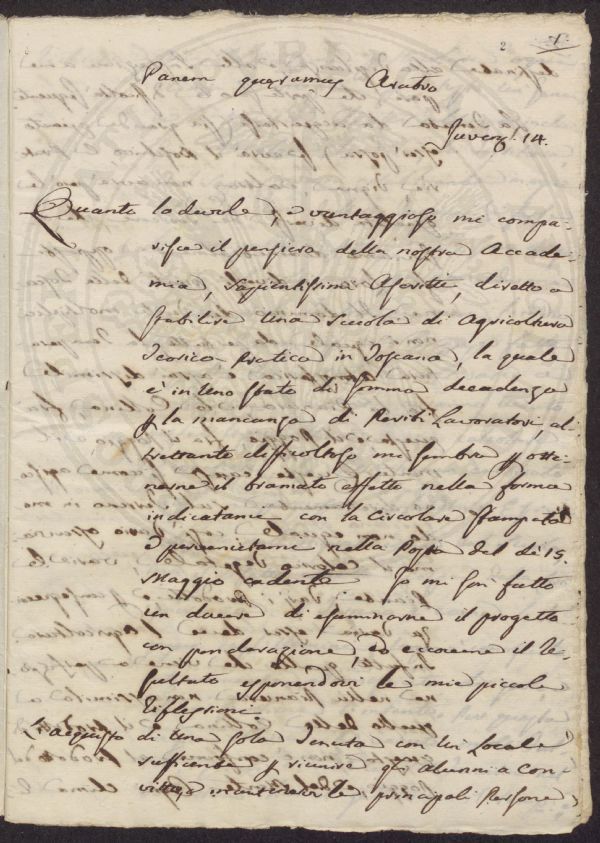 2 1.
Panem quæramus Aratro
Juvenal. 14.
Quanto lodevole, e vantaggioso mi compa-
risce il pensiero della nostra Accade-
mia, Sapientissimi Ascritti, diretto a
stabilire una Scuola di Agricoltura
Teorica-Pratica in Toscana, la quale
è in uno stato di somma decadenza
p la mancanza di Periti Lavoratori, al-
trettanto difficoltoso mi sembra p otte-
nerne il bramato effetto nella forma
indicatami con la Circolare stampata
e pervenutami nella Posta del dì 15.
Maggio cadente. Io mi son fatto
un dovere di esaminarne il progetto
con ponderazione, ed eccovene il re-
sultato esponendovi le mie piccole
riflessioni.
L'acquisto di una sola Tenuta con un Locale
sufficente p riunire gli alunni a con-
vitto, e le principali Persone